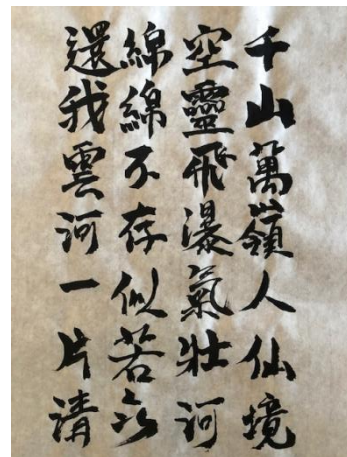 千山萬嶺人仙境
空靈飛瀑氣壯河
綿綿不存似若六
還我雲河一片清